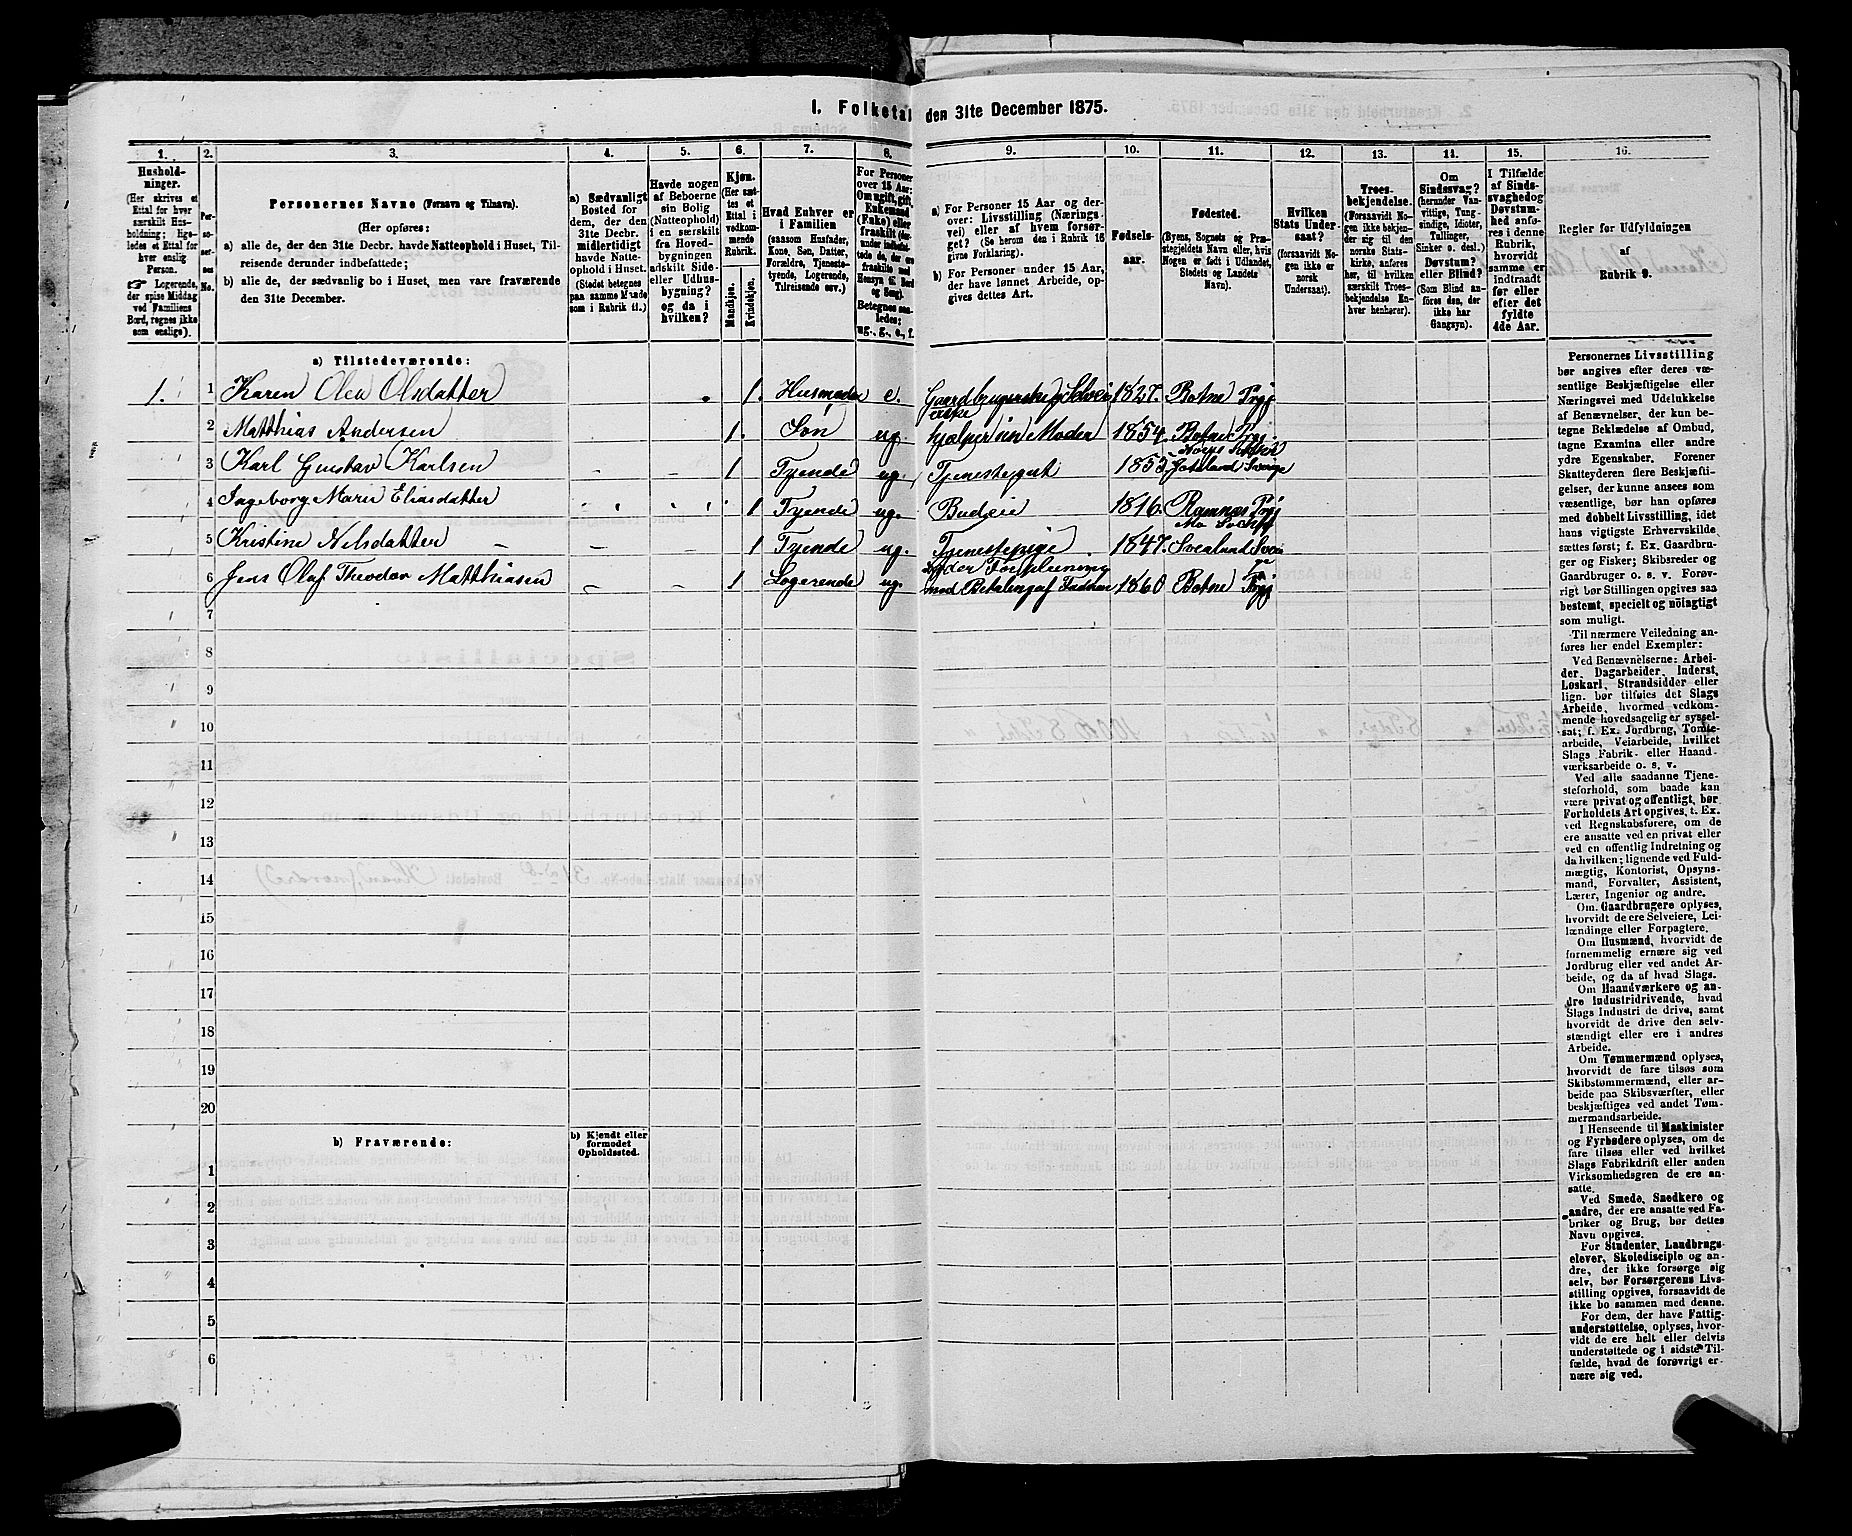 I. Folketal den 31te December 1875.
1. 2. 3. 4. 5. 6. 7. 8. 9. 10. 11. 12. 13. 14. 15. 16.
Hushold-
ninger.
(Her skrives et
Ettal for hver
særskilt Hus-
holdning; lige-
ledes et Ettal for
hver enslig
Person.
☞ Logerende,
der spise Middag
ved Familiens
Bord, regnes ikke
som enslige).
Per-
so-
ner-
nes
No.
Personernes Navne (Fornavn og Tilnavn).
(Her opføres:
a) alle de, der den 31te Decbr. havde Natteophold i Huset, Til-
reisende derunder indbefattede;
b) alle de, der sædvanlig bo i Huset, men vare fraværende
den 31te December.
a) Sædvanligt
Bosted for
dem, der den
31te Decbr.
midlertidigt
havde Natte-
ophold i Huset.
(Stedet betegnes
paa samme Maade
som i Rubrik 11.)
Havde nogen
af Beboerne
sin Bolig
(Natteophold)
i en særskilt
fra Hoved-
bygningen
adskilt Side-
eller Udhus-
bygning?
og da i
hvilken?
Kjøn.
(Her sæt-
tes et
Ettal i
vedkom-
mende
Rubrik.
Mandkjøn.
Kvindekjøn.
Hvad Enhver er
i Familien
(saasom Husfader,
Kone, Søn, Datter,
Forældre, Tjeneste-
tyende, Logerende,
Tilreisende osv.)
For Personer
over 15 Aar:
Om ugift, gift,
Enkemand
(Enke) eller
fraskilt
Betegnes saa-
ledes:
ug., g., e., f.
a) For Personer 15 Aar og der-
over: Livsstilling (Nærings-
vei) eller af hvem forsør-
get? (Se herom den i Rubrik 16
givne Forklaring).
b) For Personer under 15 Aar,
der have lønnet Arbeide, op-
gives dettes Art.
Fødsels-
aar.
Fødested.
(Byens, Sognets og Præ-
stegjeldets Navn eller, hvis
Nogen er født i Udlandet,
Stedets og Landets
Navn).
Hvilken
Stats Under-
saat?
(forsaavidt No-
gen ikke er
norsk
Undersaat).
Troes-
bekjendelse.
(Forsaavidt No-
gen ikke bekjen-
der sig til den
norske Stats-
kirke, anføres
her, til hvilken
særskilt Troes-
bekjendelse En-
hver henhører).
Om
Sindssvag?
(herunder Van-
vittige, Tung-
sindige, Idioter,
Tullinger,
Sinker o. desl.)
Døvstum?
eller Blind?
(Som Blind an-
føres den, der
ikke har
Gangsyn).
I Tilfælde
af Sinds-
svaghed og
Døvstum-
hed anfø-
res i denne
Rubrik,
hvorvidt
samme er
indtraadt
før eller
efter det
fyldte
4de Aar.
Regler for Udfyldningen
af
Rubrik 9.
a) Tilstedeværende:
1. 1 Karen Olea Olsdatter 1. Husmoder e. Gaardbrugerske, Selvei-
erske 1827. Botne Prgj
2 Matthias Andersen 1. Søn ug. hjælper sin Moder 1854. Botne Prgj.
3 Karl Gustav Karlsen 1 Tyende ug. Tjenestegut 1853 Gotaland Sverige
4 Ingeborg Marie Eliasdatter 1 Tyende ug. Budeie 1816. Ramnæs Prgj
5 Kristine Nilsdatter 1 Tyende ug. Tjenestepige 1847. Svealand Sverige
6 Jens Olaf Theodor Matthiasen 1 Logerende ug. under Forpleining
mod Betaling af Faderen 1860 Botne Prgj
7
8
9
10
11
12
13
14
15
16
17
18
19
20
b) Fraværende:
b) Kjendt eller
formodet
Opholdssted.
1
2
3
4
5
6
Personernes Livsstilling
bør angives efter deres væ-
sentlige Beskjæftigelse eller
Næringsvei med Udelukkelse
af Benævnelser, der kun be-
tegne Beklædelse af Ombud,
tagne Examina eller andre
ydre Egenskaber. Forener
Skatteyderen flere Beskjæfti-
gelser, der kunne ansees som
væsentlige, bør han opføres
med dobbelt Livsstilling, idet
hans vigtigste Erhvervskilde
sættes først; f. Ex. Gaardbru-
ger og Fisker; Skibsreder og
Gaardbruger o. s. v. Forøv-
rigt bør Stillingen opgives saa
bestemt, specielt og nöiagtigt
som muligt.
Til nærmere Veiledning an-
føres her endel Exempler:
Ved Benævnelserne: Arbei-
der, Dagarbeider, Inderst,
Løskarl, Strandsidder eller
lign. bør tilføies det Slags
Arbeide, hvormed vedkom-
mende hovedsagelig er syssel-
sat; f. Ex. Jordbrug, Tomte-
arbeide, Veiarbeide, hvilket
Slags Fabrik- eller Haand-
værksarbeide o. s. v.
Ved alle saadanne Tjene-
steforhold, som baade kan
være privat og offentligt, bør
Forholdets Art opgives, t. Ex.
ved Regnskabsførere, om de
ere ansatte ved en privat eller
ved en offentlig Indretning og
da hvilken; lignende ved Fuld-
mægtig, Kontorist, Opsyns-
mand, Forvalter, Assistent,
Lærer, Ingeniør og andre.
Om Gaardbrugere oplyses,
hvorvidt de ere Selveiere, Lei-
lændinge eller Forpagtere.
Om Husmænd, hvorvidt de
fornemmelig ernære sig ved
Jordbrug eller ved andet Ar-
beide, og da af hvad Slags.
Om Haandværkere og an-
dre Industridrivende, hvad
Slags Industri de drive, samt
hvorvidt de drive den selv-
stændigt eller ere i andres
Arbeide.
Om Tømmermænd oplyses,
hvorvidt de fare tilsøs som
Skibstømmermænd, eller ar-
beide paa Skibsværfter, eller
beskjæftiges ved andet Tøm-
mermandsarbeide.
I Henseende til Maskinister
og Fyrbødere oplyses, om de
fare tilsøs eller ved hvilket
Slags Fabrikdrift eller anden
Virksomhedsgren de ere an-
satte.
Ved Smede, Snedkere og
andre, der ere ansatte ved Fa-
briker og Brug, bør dettes
Navn opgives.
For Studenter, Landbrugs-
elever, Skoledisciple og an-
dre, der ikke forsørge sig
selv, bør Forsørgerens Livs-
stilling opgives, forsaavidt de
ikke bo sammen med denne.
For dem, der have Fattig-
understøttelse, oplyses, hvor-
vidt de ere helt eller delvis
understøttede og i sidste Til-
fælde, hvad de forøvrigt er-
nære sig ved.